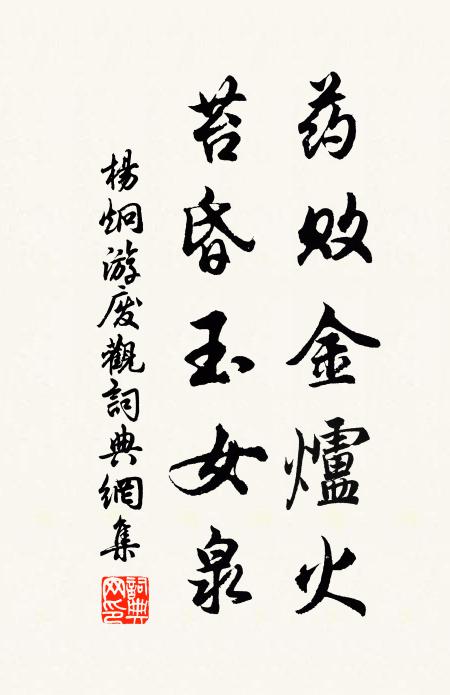 药败金爐火
苔昏玉女泉
楊炯游废觀詞典網集
詞典网印